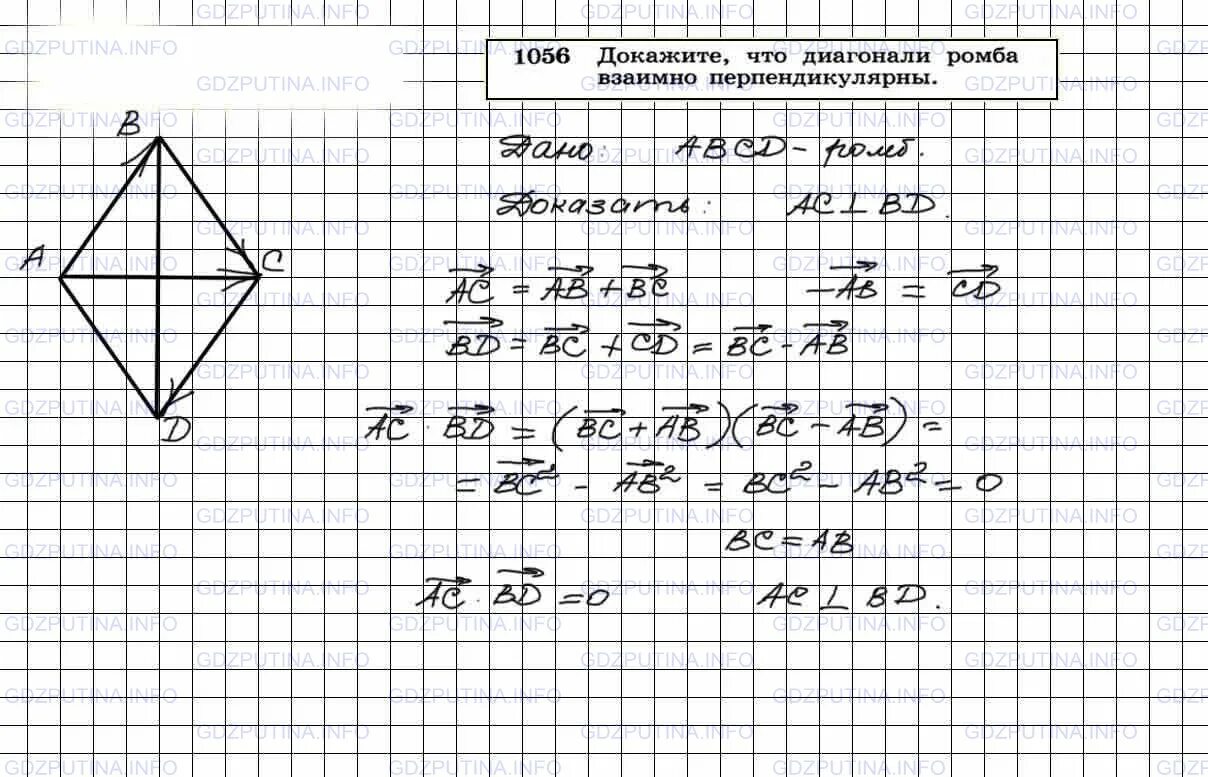 1056 Докажите, что диагонали ромба
взаимно перпендикулярны.
B
A
C
D
Дано: ABCD – ромб.
Доказать: AC ⊥ BD.
AC = AB + BC    –AB = CD
BD = BC + CD = BC – AB
AC · BD = (BC + AB)(BC – AB) =
= BC² – AB² = BC² – AB² = 0
BC = AB
AC · BD = 0    AC ⊥ BD.
GDZPUTINA.INFO